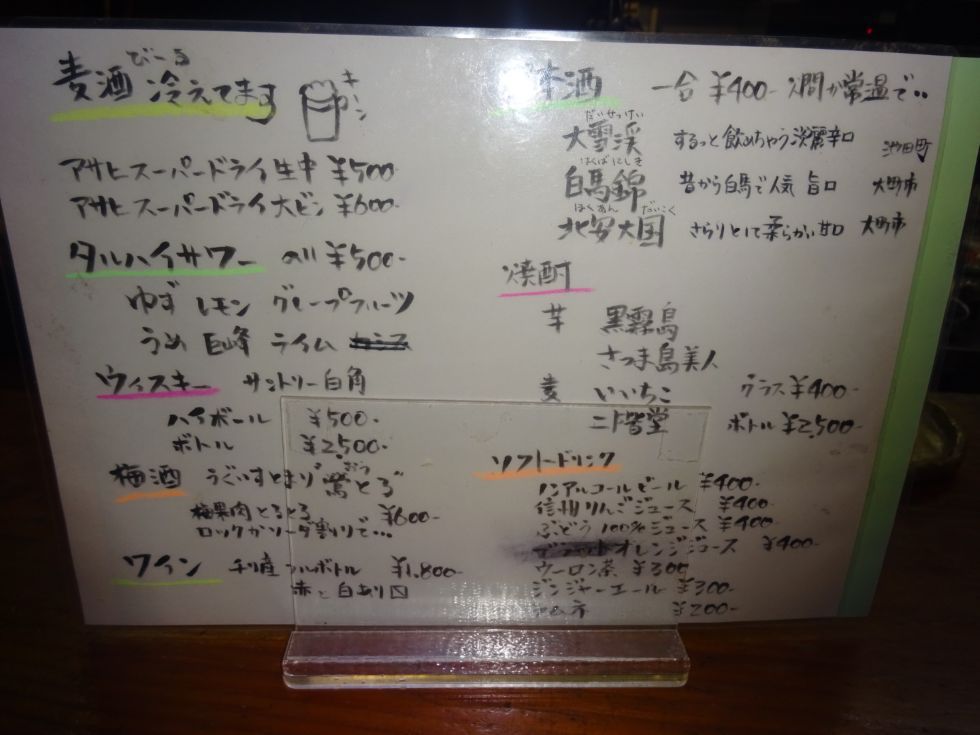 びーる
麦酒 冷えてます
キンキン
アサヒスーパードライ生中 ¥500
アサヒスーパードライ大ビン ¥600-
タルハイサワー ¥500-
ゆず レモン グレープフルーツ
うめ 巨峰 ライム
ウィスキー サントリー白角
ハイボール ¥500-
ボトル ¥2,500-
梅酒 うぐいすとまり"鶯とろ"
おう
梅果肉とろとろ ¥600-
ロックかソーダ割りで…
ワイン チリ産フルボトル ¥1,800-
赤と白あり〼
本酒 一合 ¥400- 燗か常温で..
だいせっけい
大雪渓 するっと飲めちゃう淡麗辛口 池田町
はくばにしき
白馬錦 昔から白馬で人気 旨口 大町市
ほくあん だいこく
北安大国 さらりとして柔らかい甘口 大町市
焼酎
芋 黒霧島
さつま島美人
麦 いいちこ グラス¥400-
二階堂 ボトル¥2,500-
ソフトドリンク
ノンアルコールビール ¥400-
信州りんごジュース ¥400-
ぶどう100%ジュース ¥400-
オレンジジュース ¥400-
ウーロン茶 ¥300
ジンジャーエール ¥300-
ラムネ ¥200-